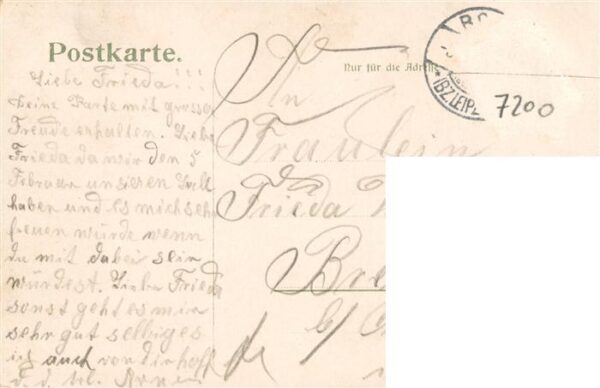 Postkarte.
Nur für die Adresse
BO
(BZ. LEIPZ
7200
Liebe Frieda!!!
Deine Karte mit grosser
Freude erhalten. Liebe
Frieda da wir den 5
Februar unsieren Ball
haben und es mich sehr
freuen würde wenn
du mit dabei sein
würdest. Liebe Frieda
sonst geht es mir
sehr gut selbiges
ich auch von dir hoff
An
Fräulein
Frieda
Bre
b/